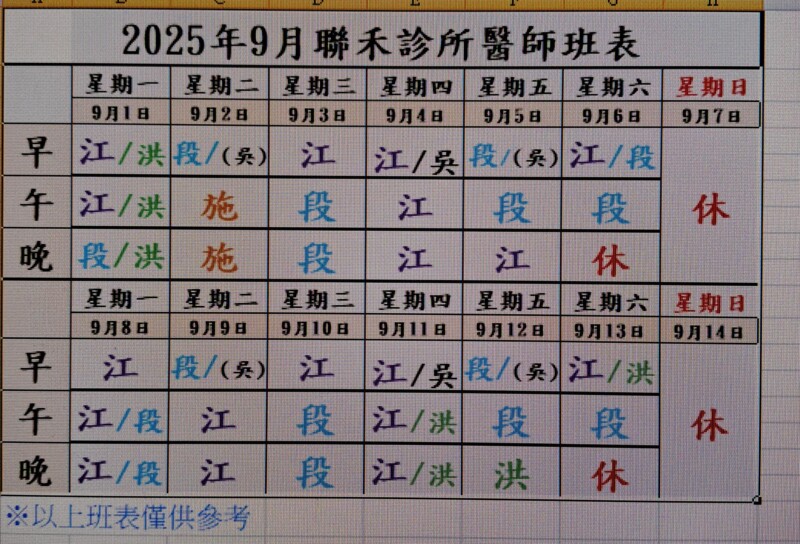 2025年9月聯禾診所醫師班表
星期一 星期二 星期三 星期四 星期五 星期六 星期日
9月1日 9月2日 9月3日 9月4日 9月5日 9月6日 9月7日
早 江/洪 段/(吳) 江 江/吳 段/(吳) 江/段
午 江/洪 施 段 江 段 段 休
晚 段/洪 施 段 江 江 休
星期一 星期二 星期三 星期四 星期五 星期六 星期日
9月8日 9月9日 9月10日 9月11日 9月12日 9月13日 9月14日
早 江 段/(吳) 江 江/吳 段/(吳) 江/洪
午 江/段 江 段 江/洪 段 段 休
晚 江/段 江 段 江/洪 洪 休
※以上班表僅供參考